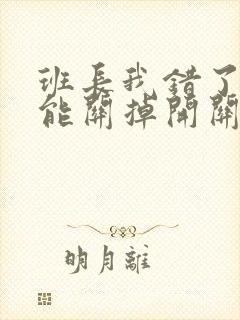 班長我錯了
能關掉開關
明月離